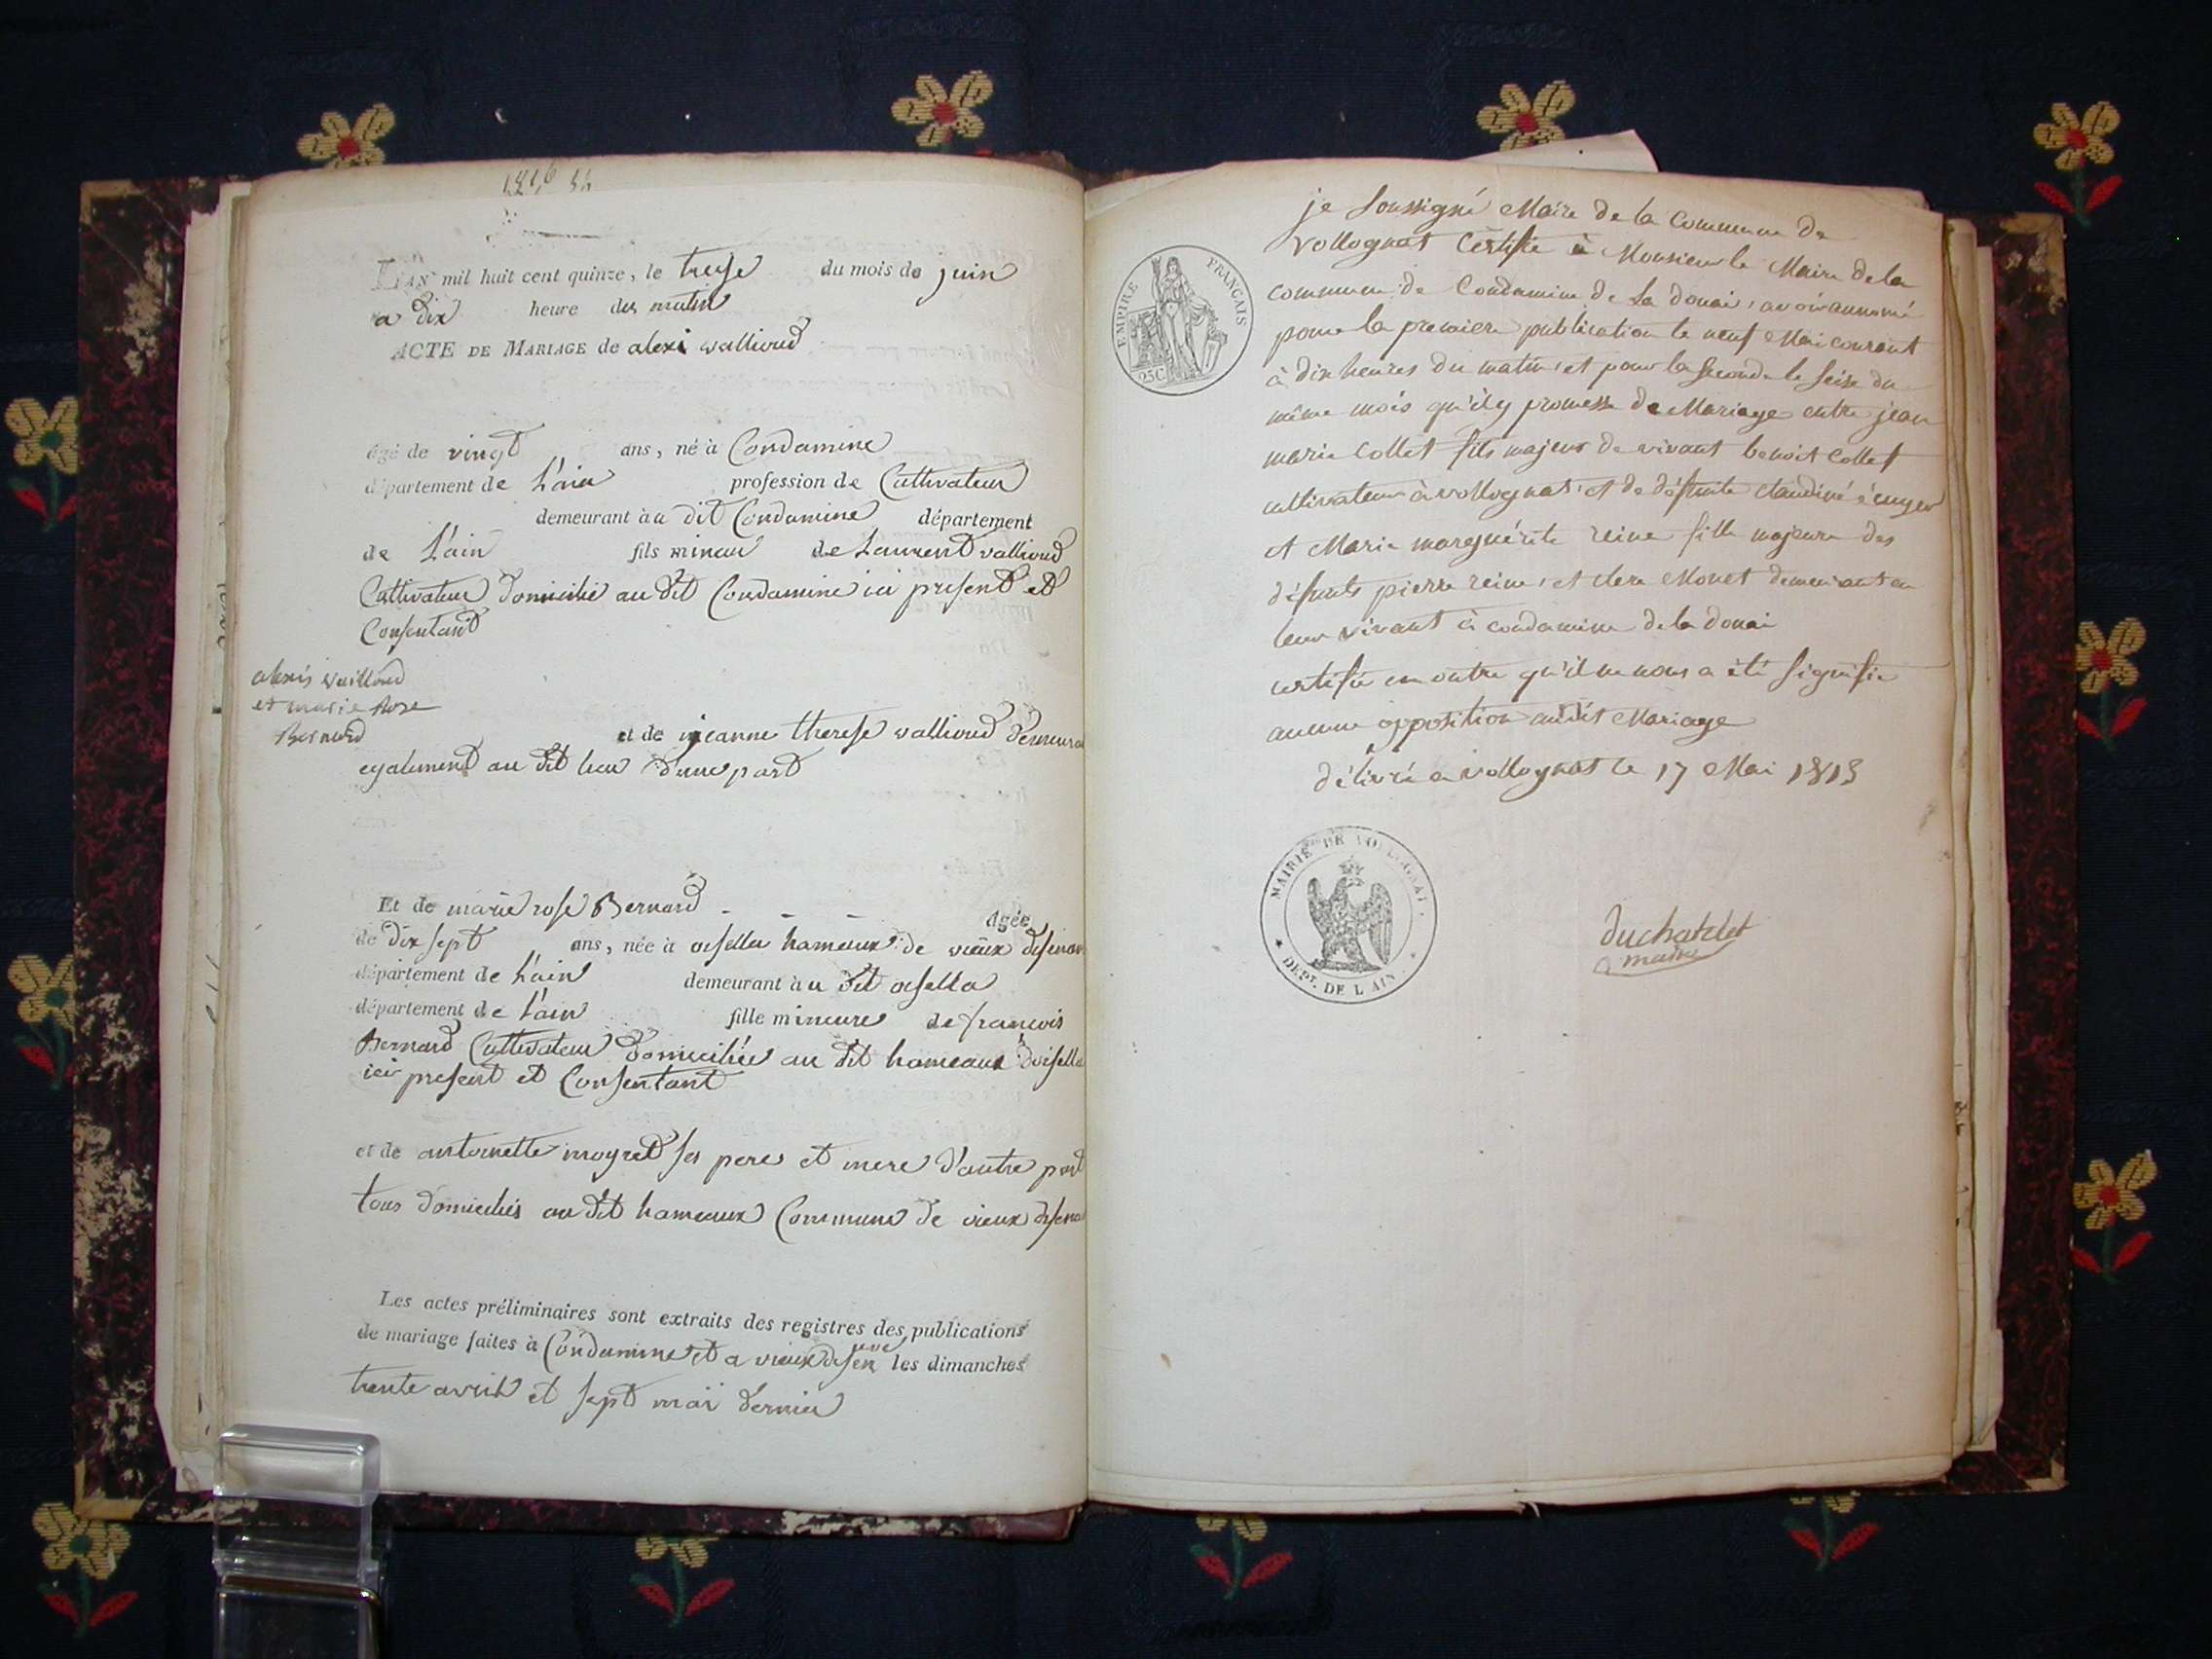 L'AN mil huit cent quinze, le treise du mois de juin
a dix heure du matin
ACTE DE MARIAGE de alexi vallioud
âgé de vingt ans, né à Condamine
département de L'ain profession de Cultivateur
demeurant àu dit Condamine département
de L'ain fils mineur de Laurent vallioud
Cultivateur domicilié au dit Condamine ici present et
Consentant
alexis vailloud
et marie Rose
Bernard
et de jeanne therese vallioud demeura
egalement au dit lieu d'une part
Et de marie rose Bernard
Agée
de dix sept ans, née à oisella hameaux de vieux disenav
département de L'ain demeurant àu dit oisella
département de L'ain fille mineure de francois
Bernard Cultivateur domiciliée au dit hameaux doisella
ici present et Consentant
et de antoinette moyret ses pere et mere d'autre part
tous domiciliés au dit hameaux Commune de vieux disena
Les actes préliminaires sont extraits des registres des publications
de mariage faites à Condamine et a vieux les dimanches
trente avril et sept mai dernier
je soussigné Maire de la Commune de
vollognat Certifie à Monsieur le Maire de la
commune de Condamine de La douai, avoir annoncé
pour la premiere publication le neuf Mai courant
à dix heures du matin, et pour la seconde le seise du
même mois qu'il y promesse de Mariage entre jean
marie Collet fils majeur de vivant benoit Collet
cultivateur à vollognat, et de défunte Claudine
et Marie marguérite reine fille majeure des
défunts pierre reine, et clere Monet demeurant en
leur vivant à condamine de la douai
certifie en outre qu'il ne nous a été signifie
aucune opposition audit Mariage
délivré a vollognat le 17 Mai 1813
duchatelet
maire
EMPIRE FRANÇAIS
25C
MAIRIE DE VOLOGNAT
DEPT. DE L'AIN